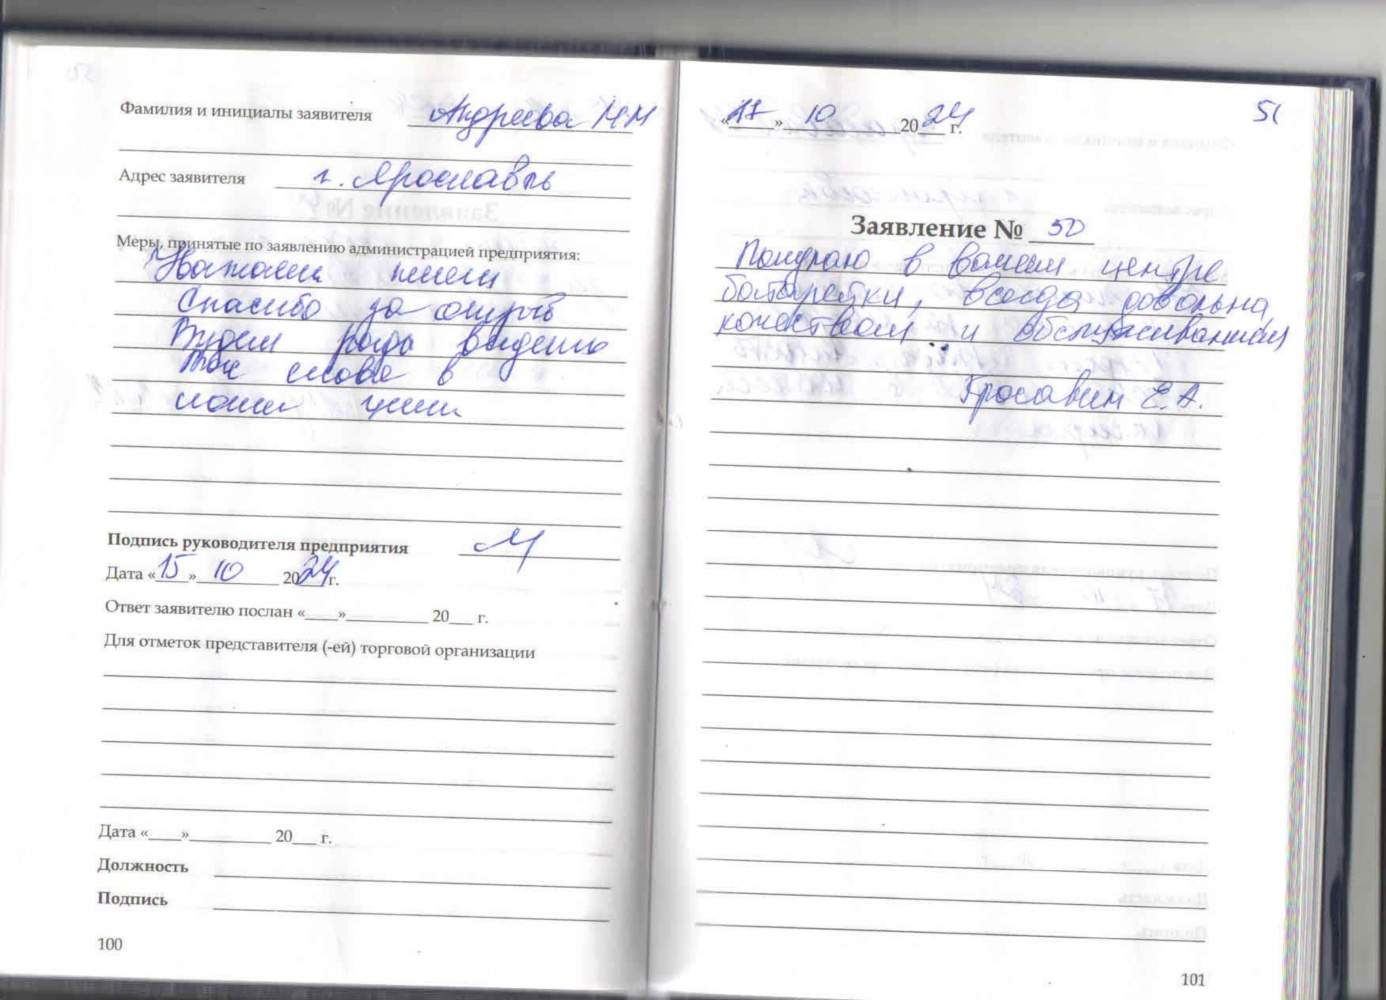 Фамилия и инициалы заявителя Андреева Н Н
Адрес заявителя г. Ярославль
Меры, принятые по заявлению администрацией предприятия:
Спасибо за
Будем рады видеть
Вас снова в
Подпись руководителя предприятия
Дата «15» 10 2024 г.
Ответ заявителю послан «___»__________ 20___ г.
Для отметок представителя (-ей) торговой организации
Дата «____»__________ 20___ г.
Должность
Подпись
100
51
«17» 10 2024 г.
Заявление № 50
Покупаю в вашем центре
батарейки, всегда довольна
качеством и обслуживанием
Е. А.
101